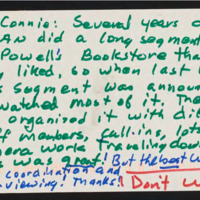 Connie: Several years a
AN did a long segment
Powell's Bookstore tha
y liked, so when last
s segment was announ
watched most of it. The
organized it with di
ff members, call-ins, lots
mera work. Traveling down
s was great! But the best w
coordination and
viewing! Thanks! Don't w